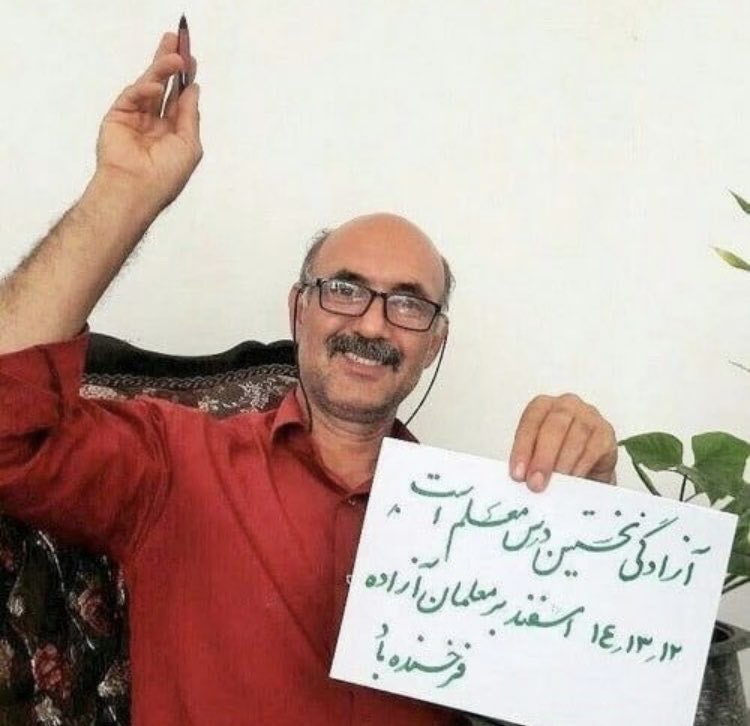 آزادگی نخستین درس معلم است.
۱۲,۱۳,۱٤ اسفند بر معلمان آزاده
فرخنده بادُ